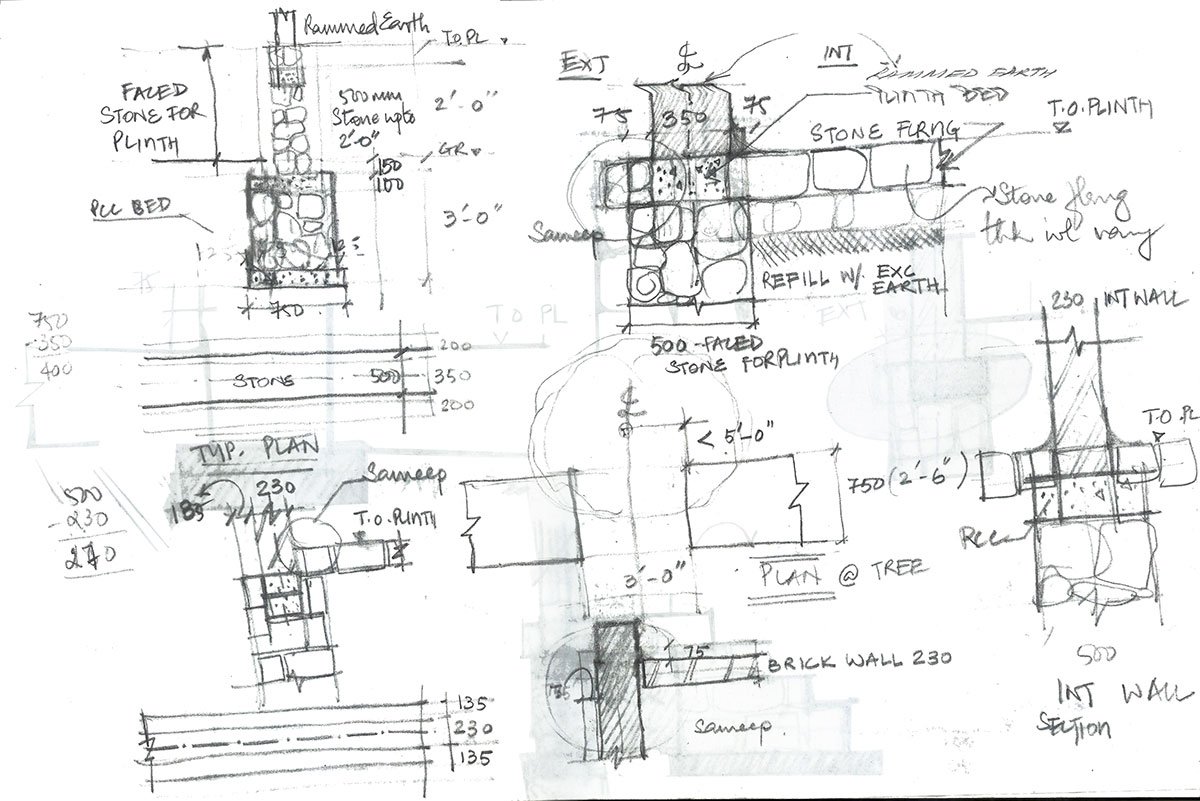 Rammed Earth
T.O.PL
FACED
STONE FOR
PLINTH
500mm
Stone upto
2'-0"
2'-0"
GR
150
100
PCC BED
3'-0"
125
750
750
-350
400
200
STONE
500
350
200
TYP. PLAN
EXT
INT
RAMMED EARTH
PLINTH BED
75
350
75
T.O.PLINTH
STONE FLRNG
Stone flrng
Sameep
REFILL W/ EXC
EARTH
500-FACED
STONE FOR PLINTH
T O PL
EXT
230
INT WALL
T.O PL
RCC
500
INT WALL
SECTION
Sameep
230
185
T.O.PLINTH
500
-230
270
135
230
135
< 5'-0"
750 (2'-6")
3'-0"
PLAN @ TREE
75
BRICK WALL 230
Sameep.